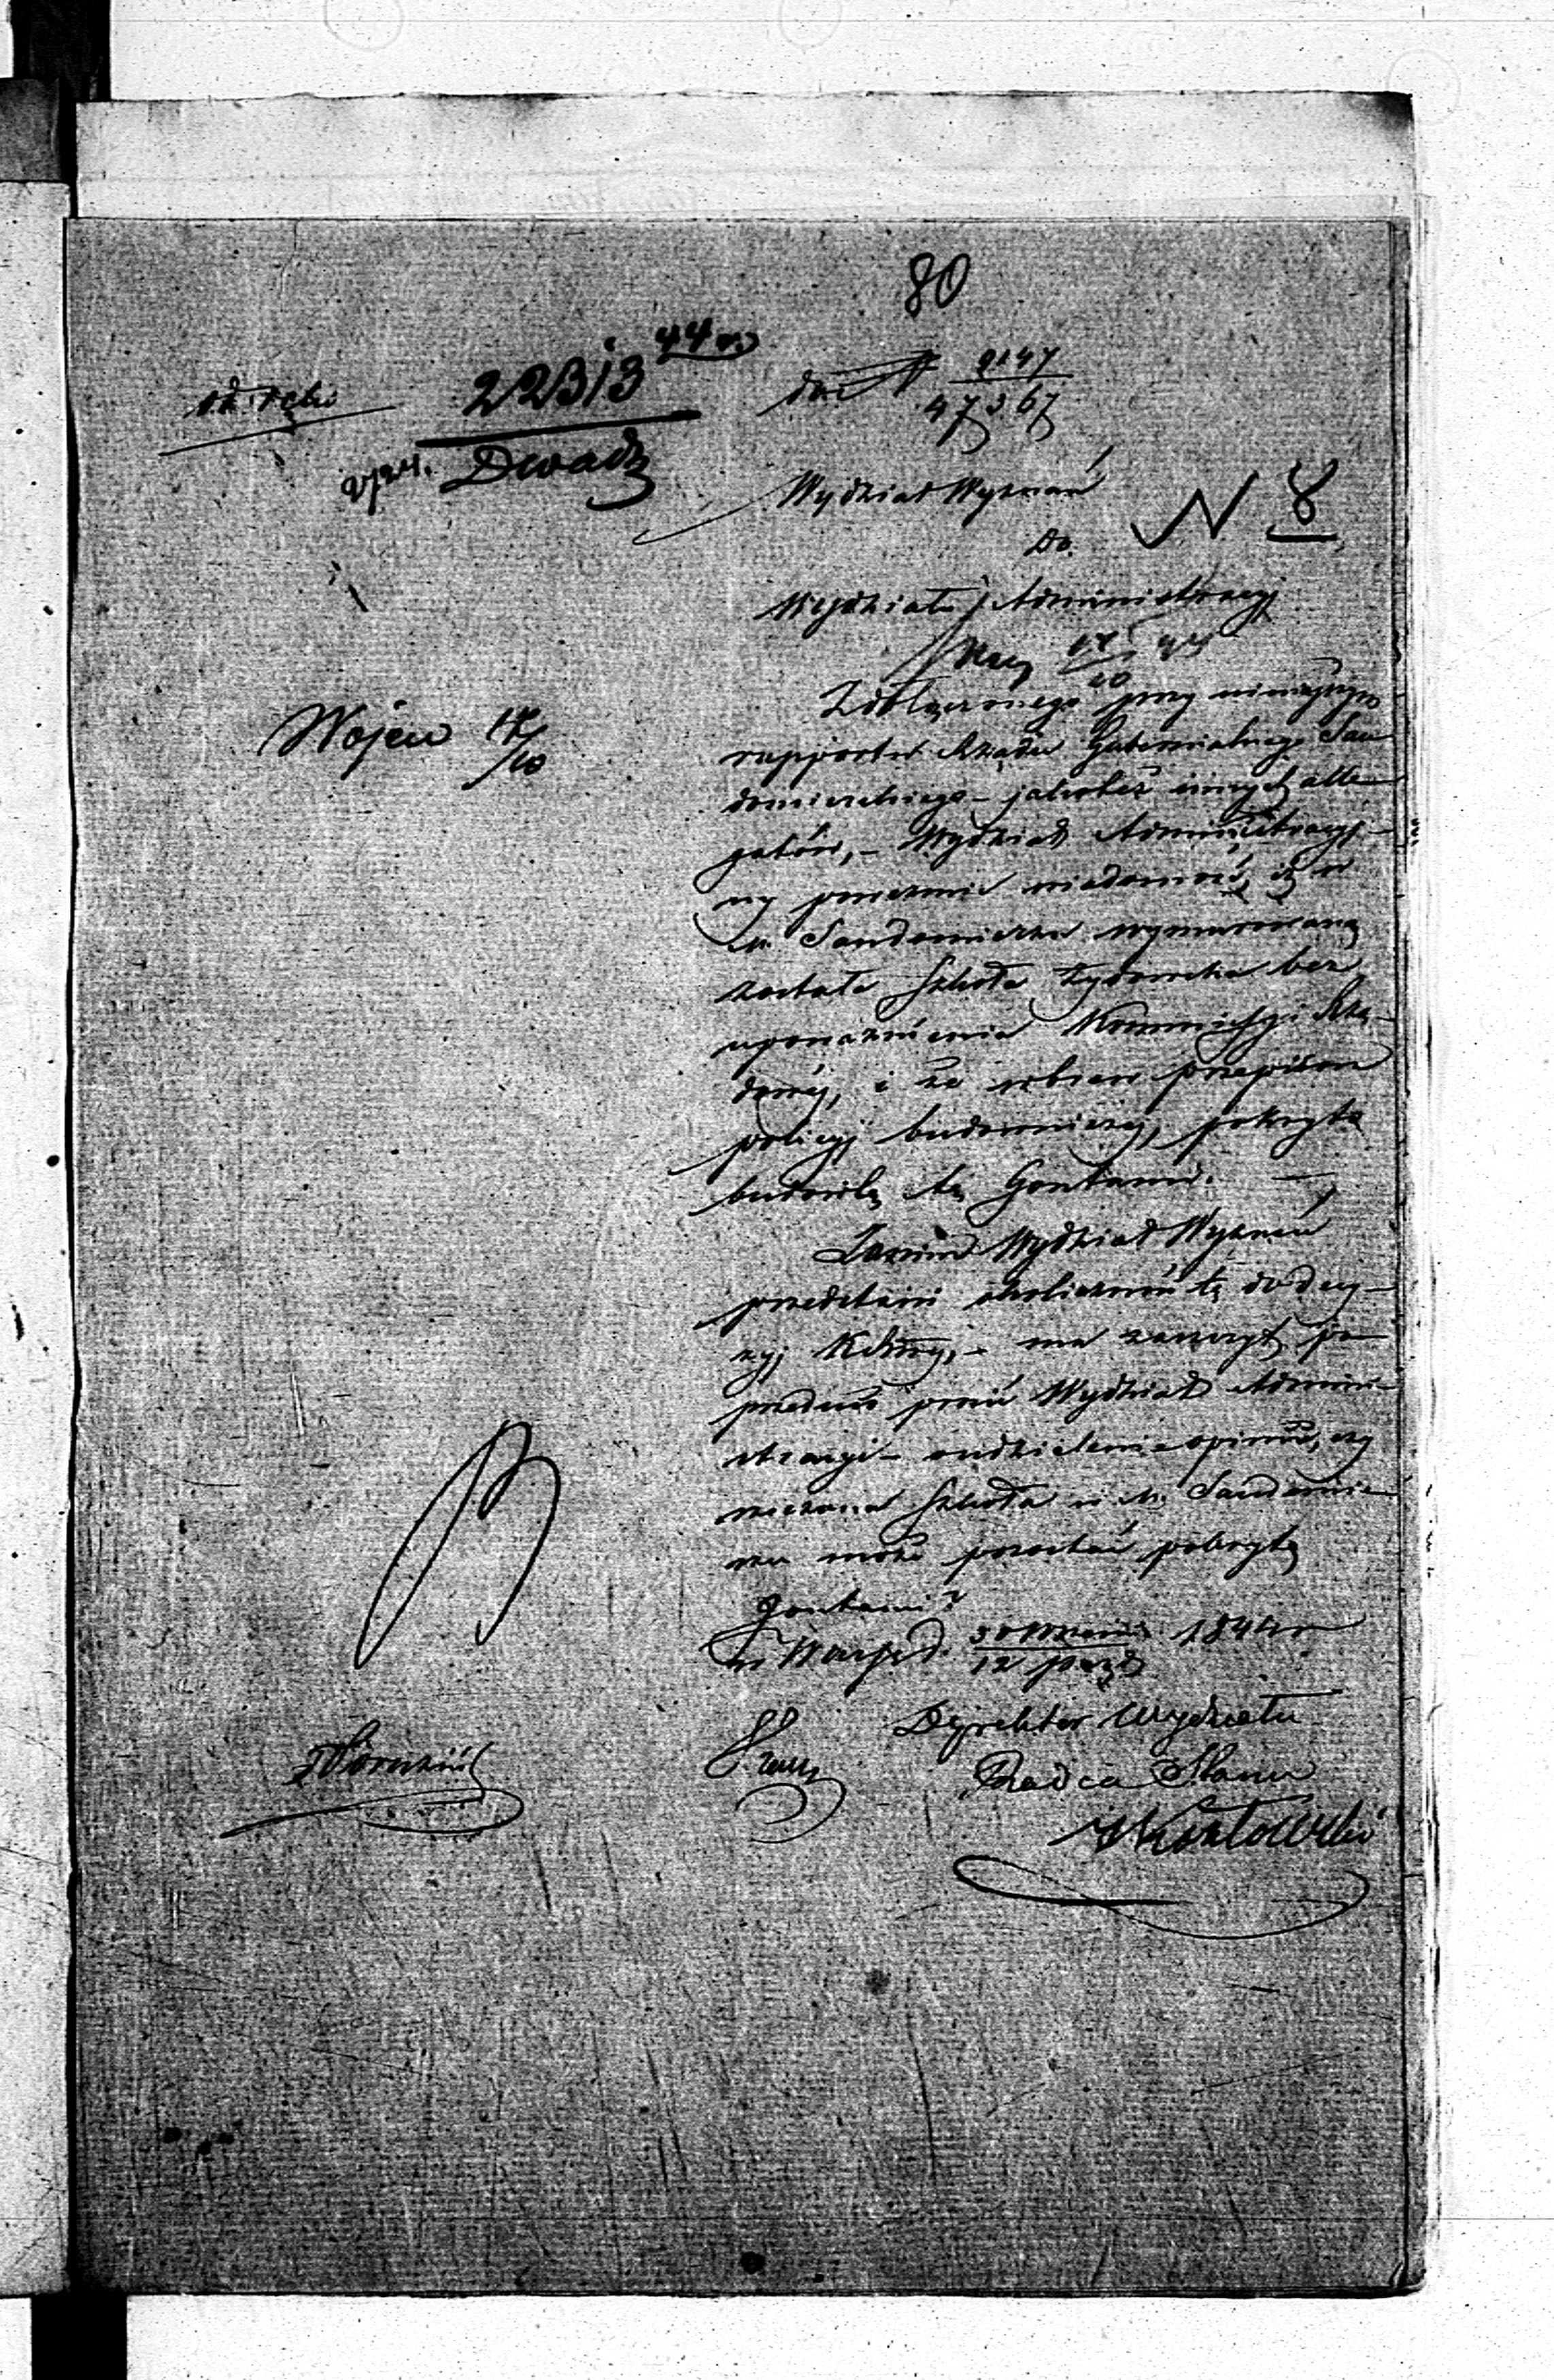 80
22313 44 r.
Dwadz
do N 9147
47367
Wydział Wyznań
Do
N 8
Wydziału Administracyj
17/10 44
Wojew 17/10
Z dołączonego przy niniejszym
rapportu Rządu Gubernialnego San
domierskiego – jakoteż innych alle
gatów, – Wydział Administracyj-
ny poweźmie wiadomość, iż w
m. Sandomierzu wymurowaną
została Szkoła Żydowska bez
upoważnienia Kommissyi Rzą-
dowéj, i że wbrew przepisom
policyj budowniczéj, pokryto
budowlę tę Gontami.
Zanim Wydział Wyznań
przedstawi okoliczność tę do decy-
zyj – ma zaszczyt po
przednio prosić Wydział Admini-
stracyi – o udzielenie opinii, czy
rzeczona Szkoła w m. Sandomie
rzu może pozostać pokrytą
gontami?
w Warsz. d. 30 Wrześni / 12 paźdz 1844 r
Dyrektor Wydziału
Radca Stanu